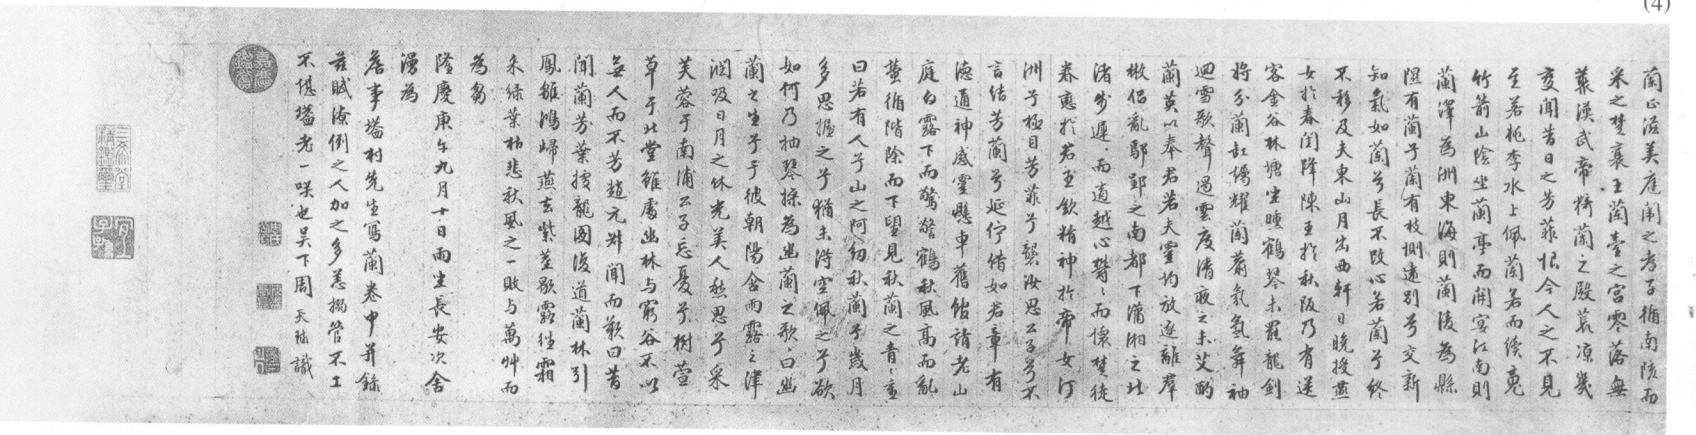 蘭正滋美庭闈之孝子循南陔而
采之楚襄王蘭臺之宮零落無
叢漢武帝猗蘭之殿荒涼幾
變聞昔日之芳菲恨今人之不見
至若桃李水上佩蘭若而續魂
竹箭山陰坐蘭亭而開宴江南則
蘭澤為洲東海則蘭陵為縣
隰有蘭兮蘭有枝贈遠別兮交新
知氣如蘭兮長不改心若蘭兮終
不移及夫東山月出西軒日晚授燕
女於春閨降陳王於秋阪乃有送
客金谷林塘坐曛鶴琴未罷龍劍
將分蘭缸燭耀蘭麝氛氳舞袖
迴雪歌聲遏雲度清夜之未艾酌
蘭英以奉君若夫靈均放逐離羣
散侶亂鄢郢之南都下瀟湘之北
渚步遲遲而適越心鬱鬱而懷楚徒
眷戀於君王斂精神於帝女汀
洲兮極目芳菲兮襲汝思公子兮不
言結芳蘭兮延佇借如君章有
德通神感靈懸車舊館請老山
庭白露下而驚鶴秋風高而亂
螢循階除而下望見秋蘭之青青重
曰若有人兮山之阿紉秋蘭兮歲月
多思握之兮猶未得空佩之兮欲
如何乃抽琴操為幽蘭之歌曰幽
蘭之生兮于彼朝陽含雨露之津
潤吸日月之休光美人愁思兮采
芙蓉于南浦公子忘憂兮樹萱
草于北堂雖處幽林与窮谷不以
無人而不芳趙元淑聞而歎曰昔
聞蘭芳葉據龍圖復道蘭林引
鳳雛鴻歸燕去紫莖歇露往霜
來綠葉枯悲秋風之一敗与萬艸而
為芻
隆慶庚午九月十日雨坐長安次舍
漫為
詹事墦村先生寫蘭卷中并錄
茲賦潦倒之人加之多恙搦管不工
不堪墦老一咲也吴下周天球識
(4)